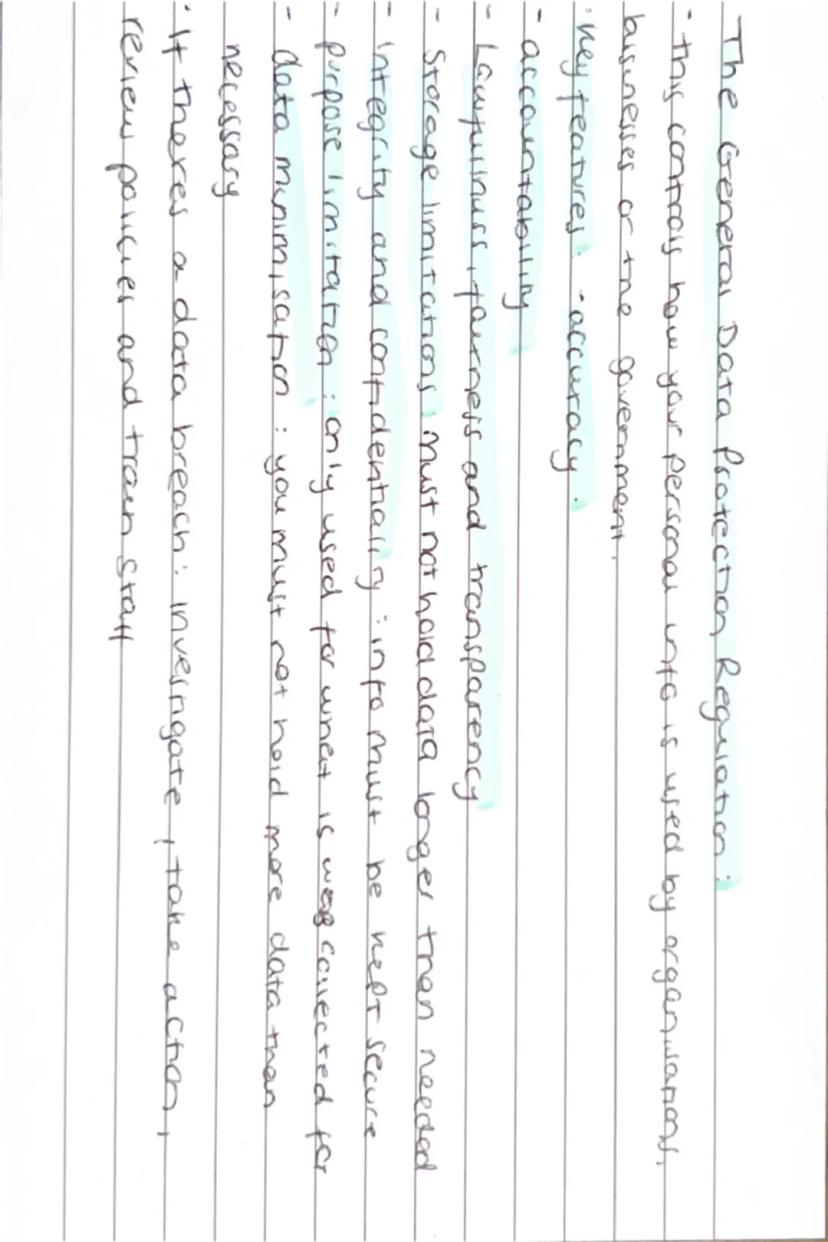 The General Data Protection Regulation:
· this controls how your personal info is used by organisations,
businesses or the government.
· Key features: - accuracy.
- accountability
- Lawfulness, fairness and transparency
- Storage limitations: must not hold data longer than needed
- integrity and confidentially: info must be kept secure
- purpose limitation: only used for what is was collected for
- data minimisation: you must not hold more data than
necessary
· If theres a data breach: investigate, take action,
review policies and train staff